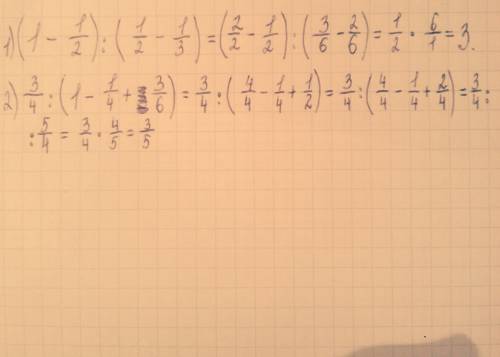 1) (1 - 1/2) : (1/2 - 1/3) = (2/2 - 1/2) : (3/6 - 2/6) = 1/2 · 6/1 = 3.
2) 3/4 : (1 - 1/4 + 3/6) = 3/4 : (4/4 - 1/4 + 1/2) = 3/4 : (4/4 - 1/4 + 2/4) = 3/4 :
: 5/4 = 3/4 · 4/5 = 3/5